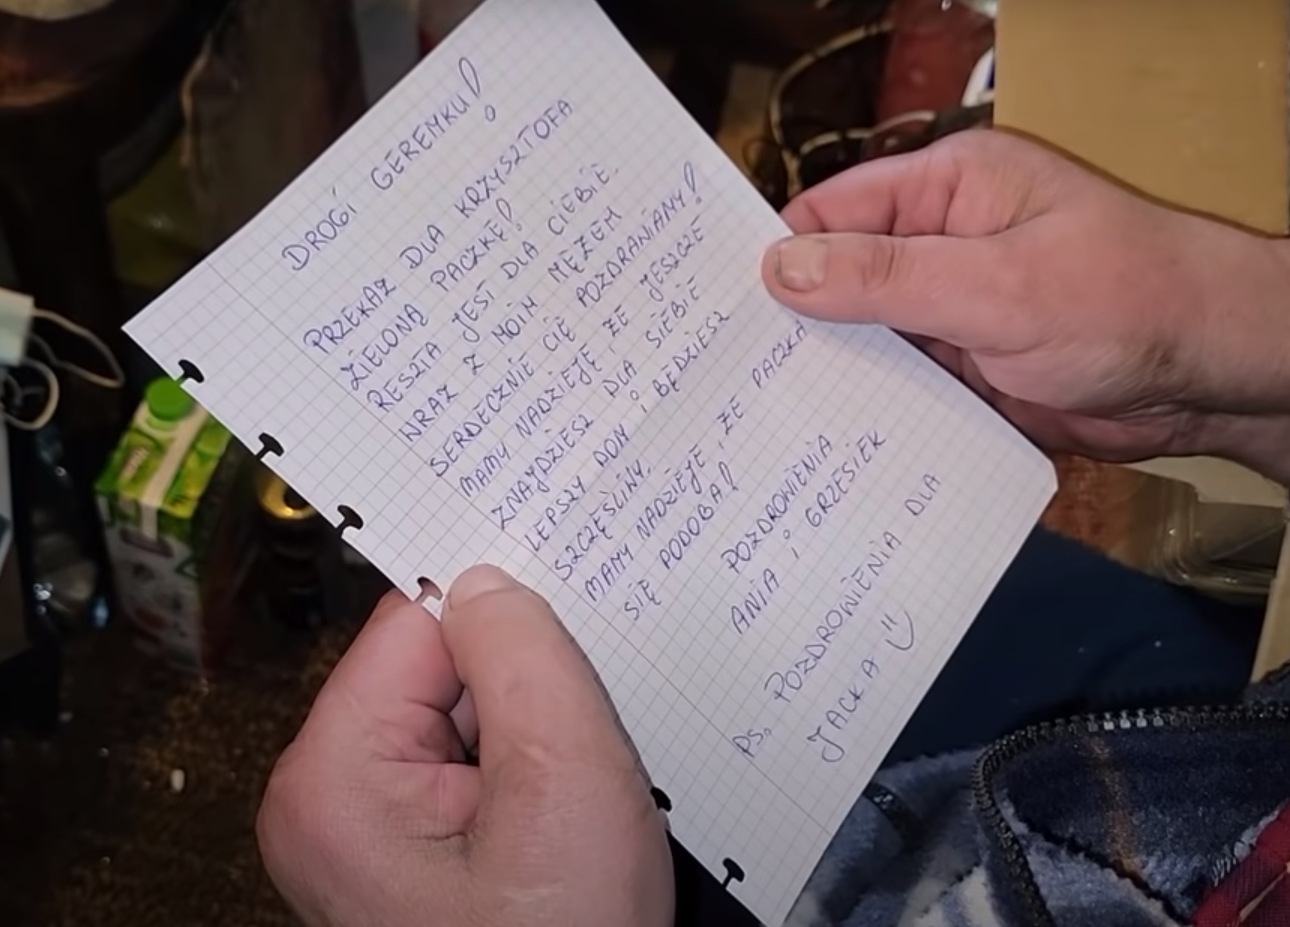 DROGI GEREMKU!
PRZEKAZ DLA KRZYSZTOFA
ZIELONĄ PACZKĘ!
RESZTA JEST DLA CIEBIE.
WRAZ Z MOIM MĘŻEM
SERDECZNIE CIĘ POZDRANIAMY!
MAMY NADZIEJĘ, ŻE JESZCZE
ZNAJDZIESZ DLA SIEBIE
LEPSZY DOM i BĘDZIESZ
SZCZĘŚLIWY.
MAMY NADZIEJĘ, ŻE PACZKA
SIĘ PODOBA!
POZDROWIENIA
ANIA i GRZESIEK
PS. POZDROWIENIA DLA
JACKA